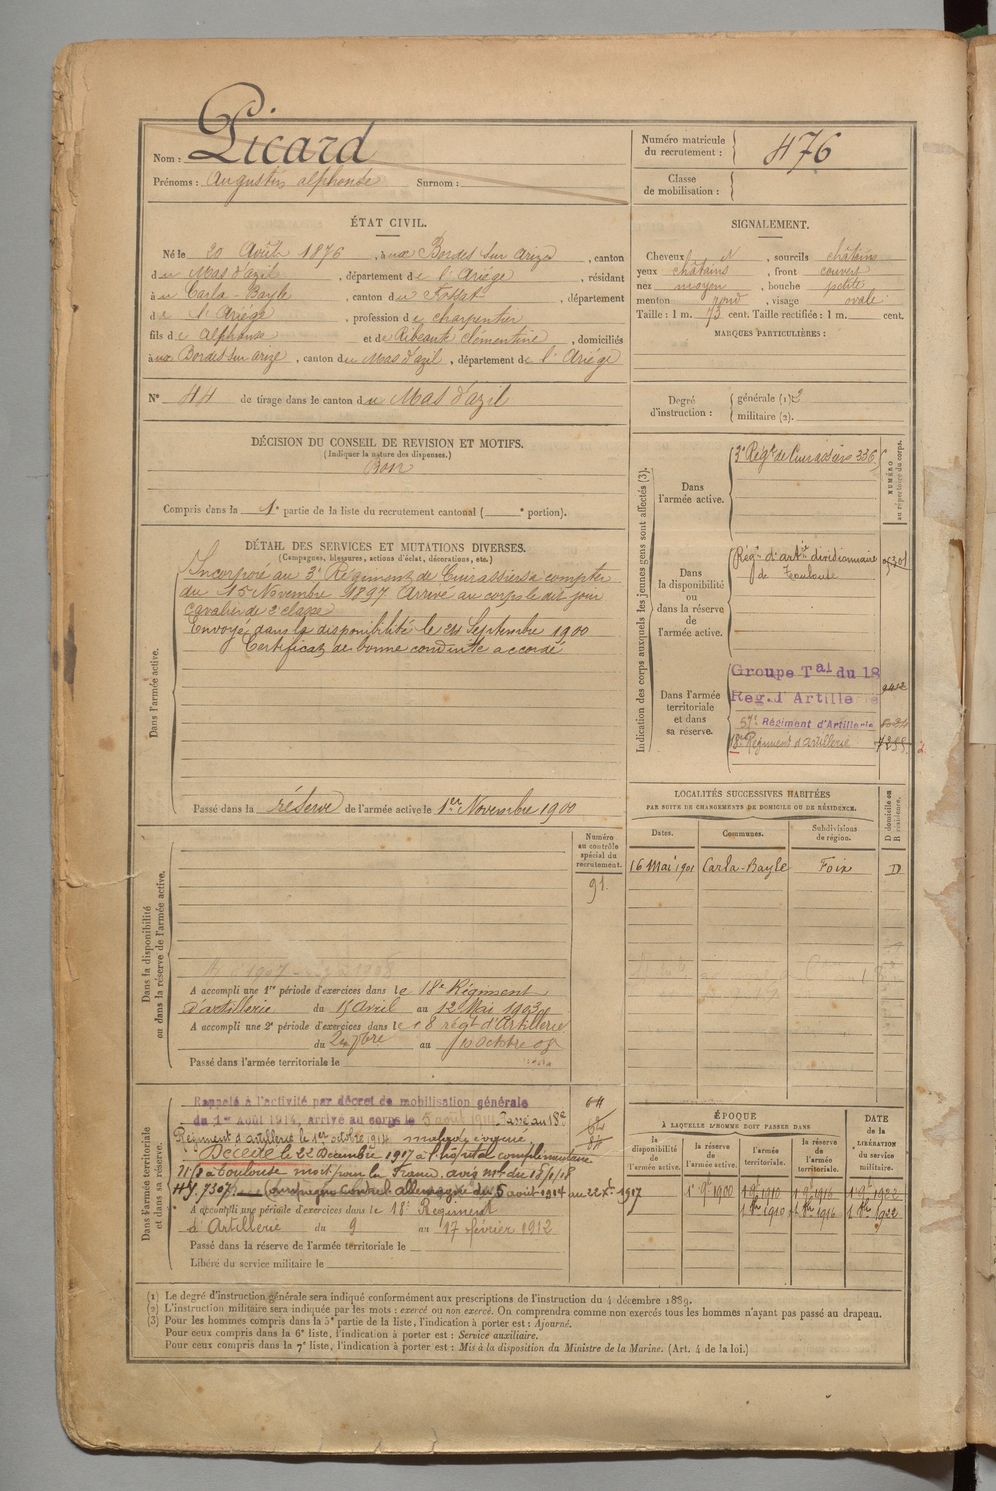 Nom : Picard
Prénoms : Augustin alphonse Surnom :
Numéro matricule
du recrutement : 476
Classe
de mobilisation :
ÉTAT CIVIL.
Né le 20 Août 1876 , à Bordes sur Arize , canton
du Mas d'azil , département de l'Ariége , résidant
à Carla-Bayle , canton du Fossat , département
de l'Ariége , profession de charpentier
fils de Alphonse et de Ribeaute Clémentine , domiciliés
à Bordes sur arize , canton du Mas d'azil , département de l'Ariége
N° 44 de tirage dans le canton du Mas d'azil
SIGNALEMENT.
Cheveux N , sourcils châtains
yeux châtains , front couvert
nez moyen , bouche petite
menton rond , visage ovale
Taille : 1 m. 73 cent. Taille rectifiée : 1 m. cent.
MARQUES PARTICULIÈRES :
Degré
d'instruction :
générale (1) 3
militaire (2).
DÉCISION DU CONSEIL DE REVISION ET MOTIFS.
(Indiquer la nature des dispenses.)
Bon
Compris dans la 1e partie de la liste du recrutement cantonal ( e portion).
DÉTAIL DES SERVICES ET MUTATIONS DIVERSES.
(Campagnes, blessures, actions d'éclat, décorations, etc.)
Dans l'armée active.
Incorporé au 3e Régiment de Cuirassiers à compter
du 15 Novembre 1897 Arrivé au corps le dit jour
Cavalier de 2e classe
Envoyé dans la disponibilité le 24 Septembre 1900
Certificat de bonne conduite accordé
Passé dans la réserve de l'armée active le 1er Novembre 1900
Indication des corps auxquels les jeunes gens sont affectés (3).
NUMÉRO
au répertoire du corps.
Dans
l'armée active.
3e Régt de Cuirassiers 336
Dans
la disponibilité
ou
dans la réserve
de
l'armée active.
Régn d'artie divisionnaire
de Toulouse
Dans l'armée
territoriale
et dans
sa réserve.
Groupe Tal du 18
Reg. d'Artillerie
57e Régiment d'Artillerie
18e Régiment d'artillerie
LOCALITÉS SUCCESSIVES HABITÉES
PAR SUITE DE CHANGEMENTS DE DOMICILE OU DE RÉSIDENCE.
Dates. Communes. Subdivisions
de région.
D domicile ou
R résidence.
16 Mai 1901 Carla-Bayle Foix D
Numéro
au contrôle
spécial du
recrutement.
91
Dans la disponibilité
ou dans la réserve de l'armée active.
A accompli une 1re période d'exercices dans le 18e Régiment
d'artillerie du 15 Avril au 12 Mai 1903
A accompli une 2e période d'exercices dans le 18 régt d'Artillerie
du au 10 octobre 08
Passé dans l'armée territoriale le
Dans l'armée territoriale
et dans sa réserve.
Rappelé à l'activité par décret de mobilisation générale
du 1er août 1914, arrivé au corps le 5 août 1914 Passé au 18e
Régiment d'artillerie le 1er octobre 1914
Décédé le 22 Décembre 1917 à l'hôpital complémentaire
à Toulouse mort pour la France. avis
Campagne Contre l'allemagne du 5 août 1914 au 22 Xbre 1917
A accompli une période d'exercices dans le 18e Régiment
d'Artillerie du 9 au 17 février 1912
Passé dans la réserve de l'armée territoriale le
Libéré du service militaire le
64
ÉPOQUE
À LAQUELLE L'HOMME DOIT PASSER DANS
la
disponibilité
de
l'armée active.
la réserve
de
l'armée active.
l'armée
territoriale.
la réserve
de
l'armée
territoriale.
DATE
de la
LIBÉRATION
du service
militaire.
(1) Le degré d'instruction générale sera indiqué conformément aux prescriptions de l'instruction du 4 décembre 1889.
(2) L'instruction militaire sera indiquée par les mots : exercé ou non exercé. On comprendra comme non exercés tous les hommes n'ayant pas passé au drapeau.
(3) Pour les hommes compris dans la 5e partie de la liste, l'indication à porter est : Ajourné.
Pour ceux compris dans la 6e liste, l'indication à porter est : Service auxiliaire.
Pour ceux compris dans la 7e liste, l'indication à porter est : Mis à la disposition du Ministre de la Marine. (Art. 4 de la loi.)